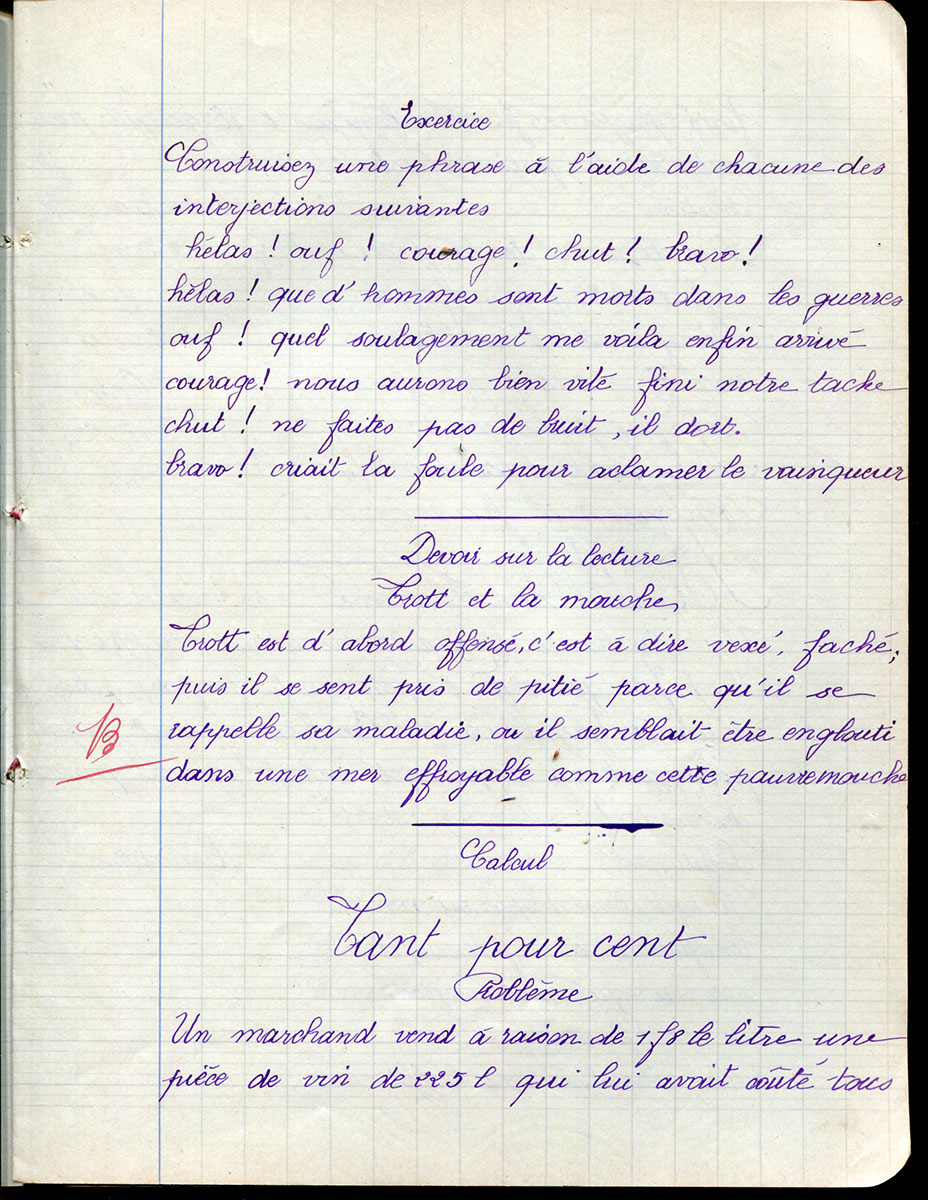 Exercice
Construisez une phrase à l'aide de chacune des
interjections suivantes
hélas ! ouf ! courage ! chut ! bravo !
hélas ! que d'hommes sont morts dans les guerres
ouf ! quel soulagement me voila enfin arrivé
courage ! nous aurons bien vite fini notre tache
chut ! ne faites pas de bruit, il dort.
bravo ! criait la foule pour aclamer le vainqueur
Devoir sur la lecture
Trott et la mouche
Trott est d'abord offensé, c'est à dire vexé, faché;
puis il se sent pris de pitié parce qu'il se
rappelle sa maladie, ou il semblait être englouti
B
dans une mer effroyable comme cette pauvre mouche
Calcul
Tant pour cent
Problème
Un marchand vend à raison de 1f8 le litre une
pièce de vin de 225 l qui lui avait coûté tous